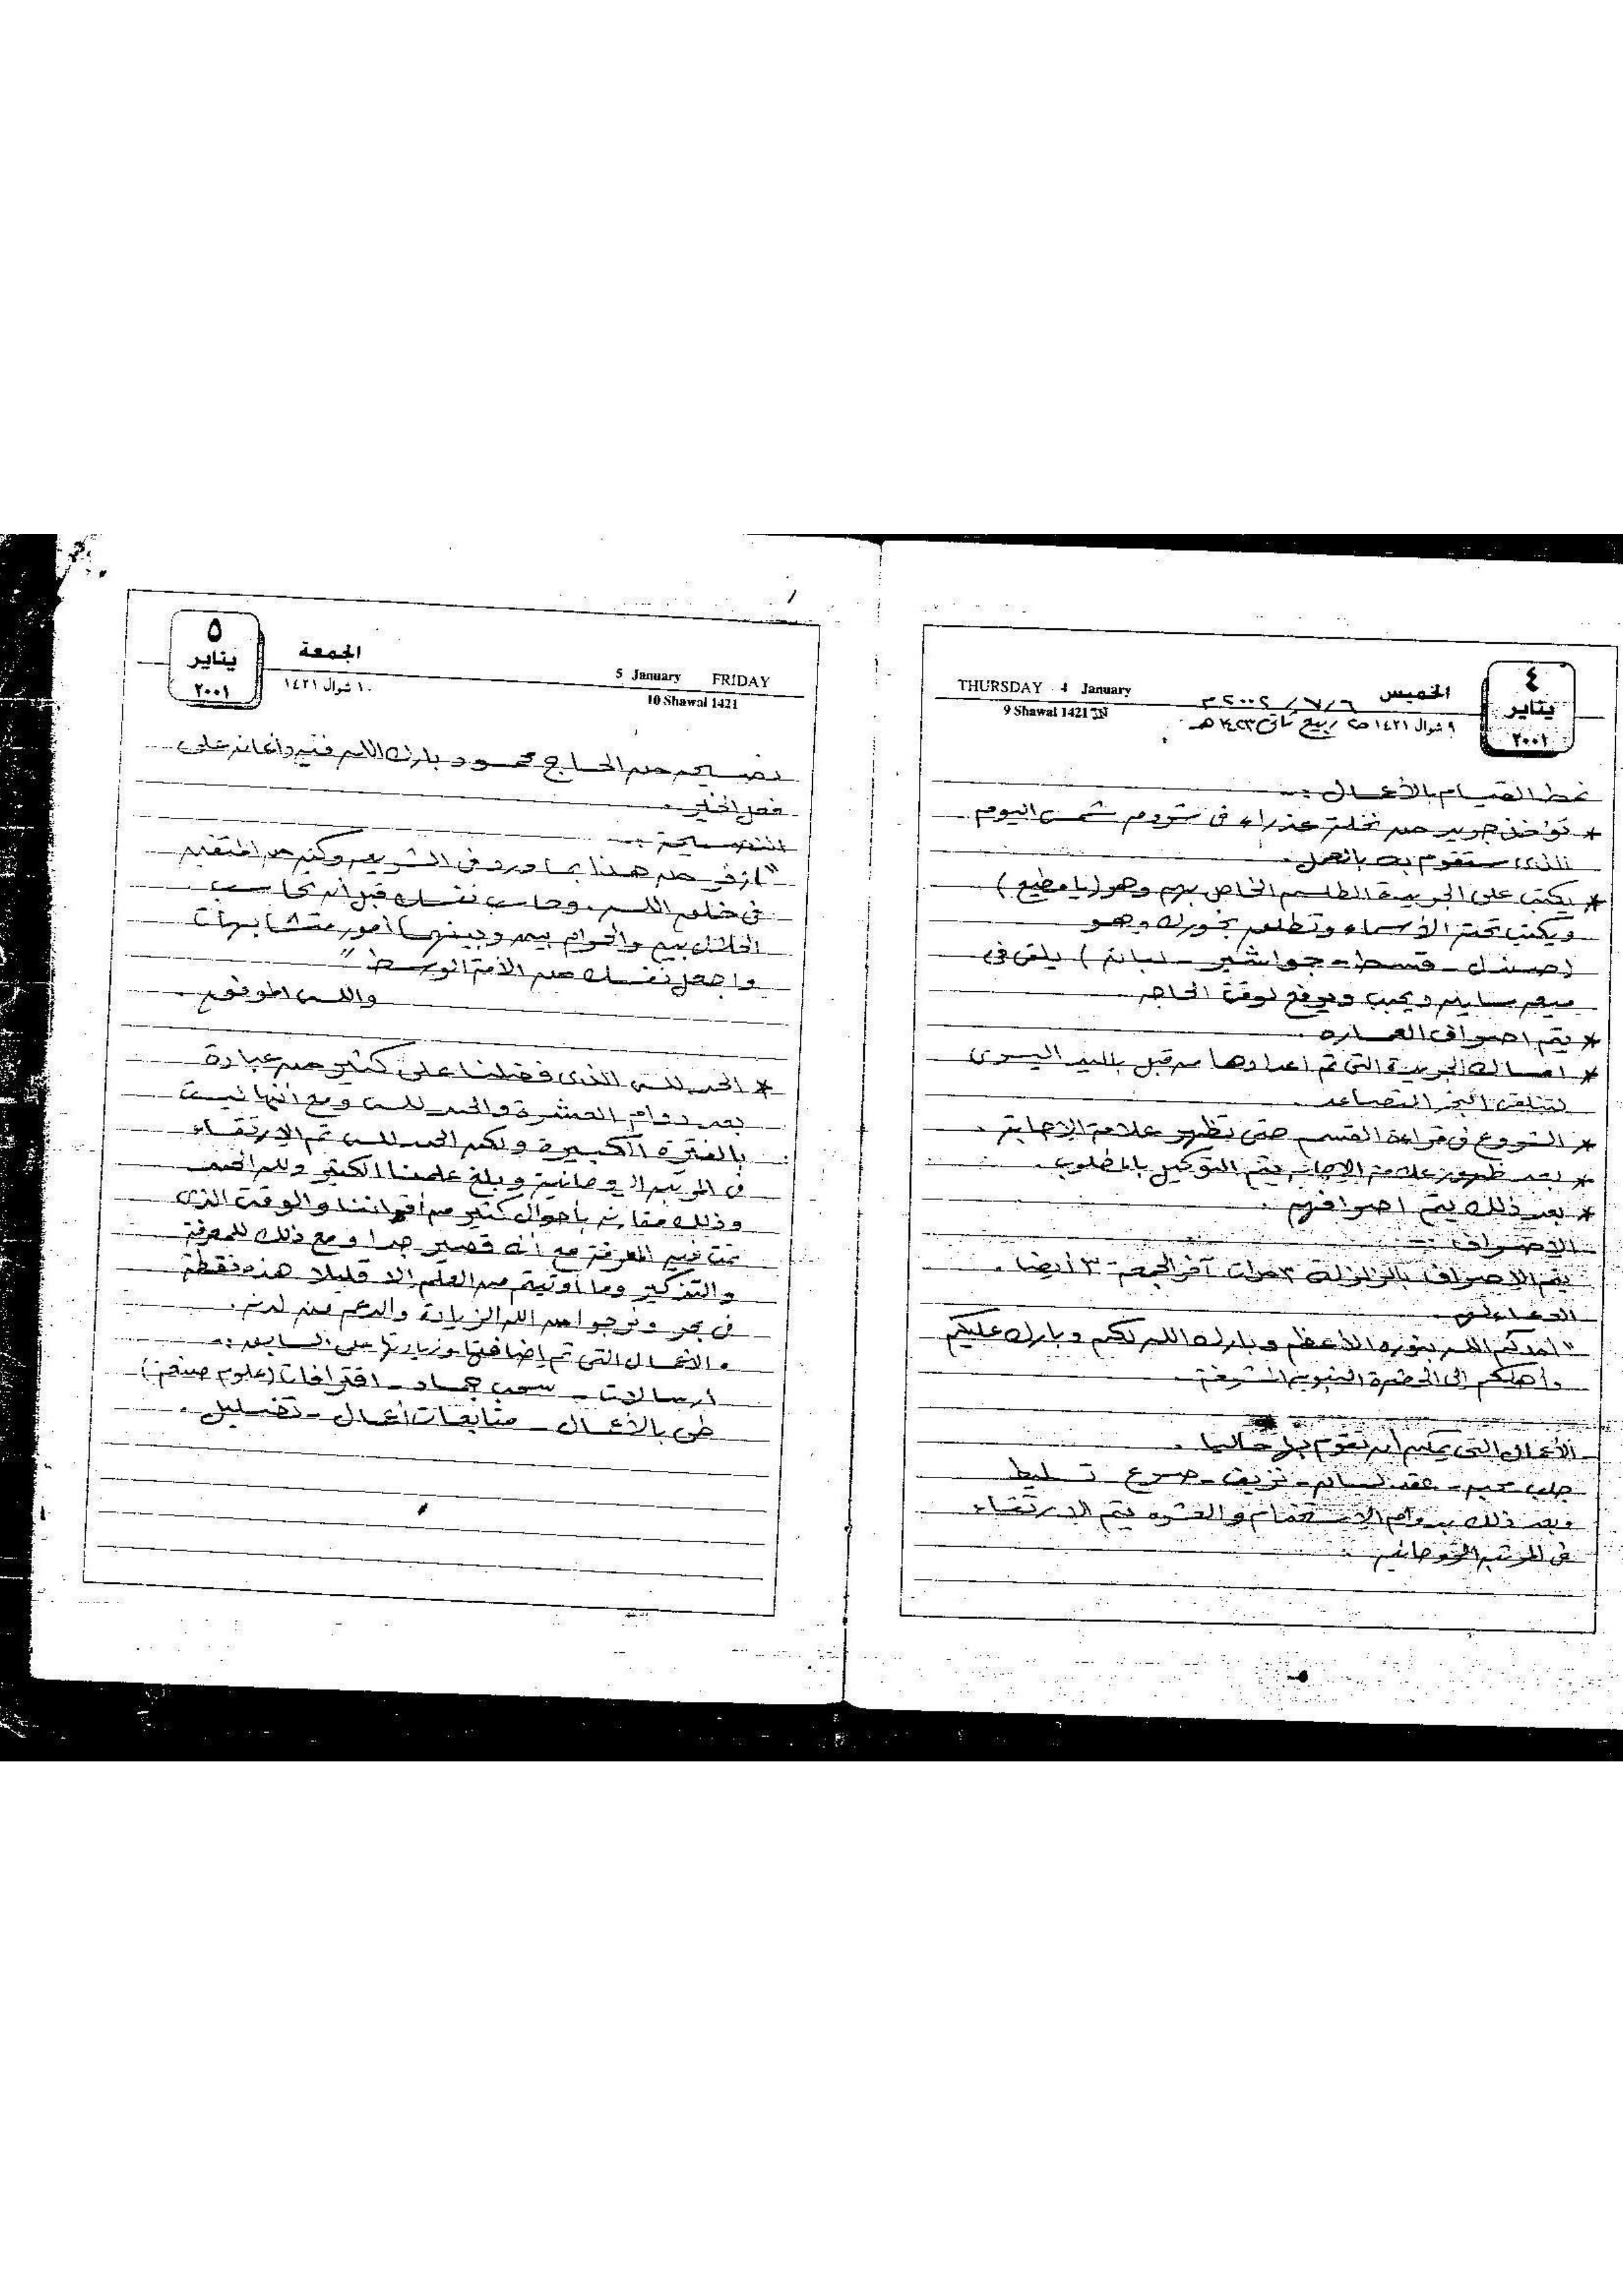 ٤
يناير
٢٠٠١
الخميس
٩ شوال ١٤٢١
٢٠٠٢/٧/٦ م
ربيع ثانى ١٤٢٣ هـ
THURSDAY 4 January
9 Shawal 1421
نمط القيام بالأعمال :-
* تؤخذ جريد من نخلة عذراء فى شروق شمس اليوم
الذى ستقوم به بالعمل .
* يكتب على الجريدة الطلسم الخاص بهم وهو (يا مطيع)
ويكتب تحته الأسماء وتطلق بخورك وهو
(صندل - قسط - جواشير - لبان) يلقى فى
ويرفع لوقت الحاجه .
* يتم اصراف العماره .
* امساك الجريدة التى تم اعدادها من قبل باليد اليسرى
لتتلقى البخر المتصاعد .
* الشروع فى قراءة القسم حتى تظهر علامة الإجابة .
* بعد ظهور علامة الإجابه يتم التوكيل بالمطلوب .
* بعد ذلك يتم اصرافهم .
الإصراف :-
يتم الإصراف بالزلزلة ٣ مرات آخر الجمعة ٣ أيضا .
الدعاء لهم
" أمدكم الله بنوره الأعظم وبارك الله لكم وبارك عليكم
وأهلكم الى الحضرة النبوية الشريفة .
الأعمال التى يمكن أن تقوم بها حاليا .
جلب - عقد لسان - نزيف - صرع - تسليط
وبعد ذلك بدوام والعشره يتم الارتقاء
فى المرتبه الروحانيه .
٥
يناير
٢٠٠١
الجمعة
١٠ شوال ١٤٢١
5 January FRIDAY
10 Shawal 1421
نصيحه من الحاج محمود بارك الله فيه وأعانه على
فعل الخير .
النصيحة :-
من هذا بما ورد فى الشريعه وكن من المتقين
فى خلق الله . وحاسب نفسك قبل أن تحاسب
الحلال بين والحرام بين وبينهما أمور متشابهات
واجعل نفسك من الأمة الوسط "
والله الموفق .
* الحمد لله الذى فضلنا على كثير من عباده
بعد دوام العشرة والحمد لله ومع انها ليست
بالفترة الكبيرة ولكن الحمد لله تم الارتقاء
فى المرتبه الروحانية وبلغ علمنا الكثير ولله الحمد
وذلك مقارنه بأحوال كثير من أقراننا والوقت الذى
تمت فيه المعرفة مع أنه قصير جدا ومع ذلك للمعرفة
والتذكير وما أوتيتم من العلم إلا قليلا هذه نقطة
فى بحر ونرجوا من الله الزيادة والدعم من لدنه .
والأعمال التى تم إضافتها وزيادتها على السابق :-
ارسالات - سحب جماد -
طى بالأعمال - متابعات أعمال - تضليل .